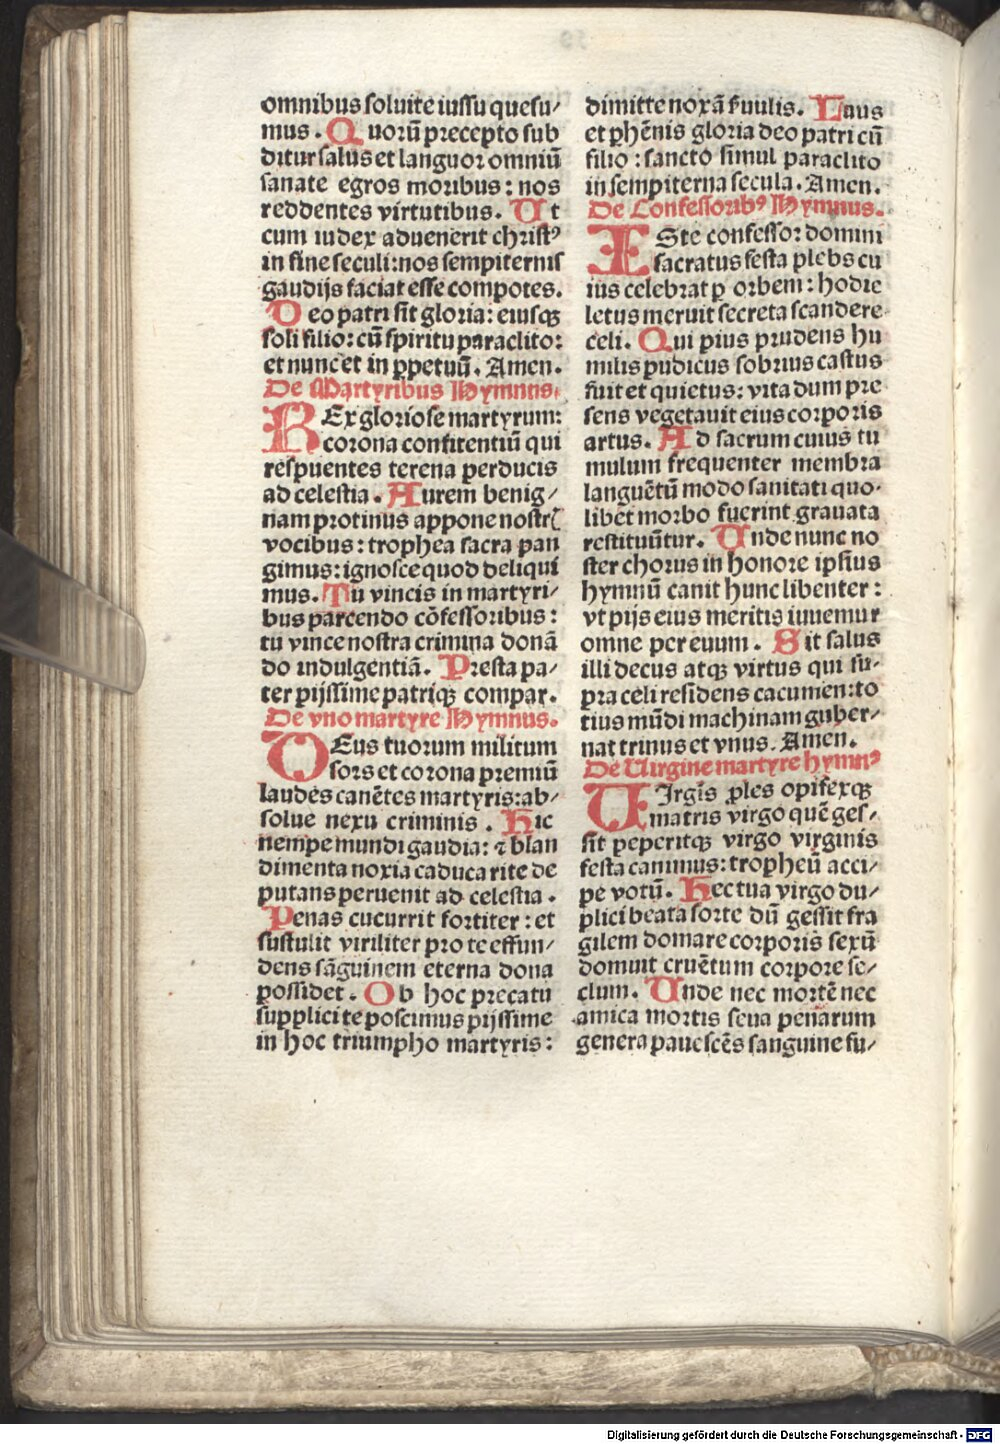 omnibus soluite iussu quesu/
mus. Quorū precepto sub
ditur salus et languor omniū
sanate egros moribus: nos
reddentes virtutibus. Ut
cum iudex aduenerit christꝰ
in fine seculi: nos sempiternis
gaudijs faciat esse compotes.
Deo patri sit gloria: eiusqꝫ
soli filio: cū spiritu paraclito:
et nunc et in ꝑpetuū. Amen.
De Martyribus Hymnus.
REx gloriose martyrum:
corona confitentiū qui
respuentes terena perducis
ad celestia. Aurem benig/
nam protinus appone nostrꝭ
vocibus: trophea sacra pan
gimus: ignosce quod deliqui
mus. Tu vincis in martyri/
bus parcendo cōfessoribus:
tu vince nostra crimina donā
do indulgentiā. Presta pa/
ter pijssime patriqꝫ compar.
De vno martyre Hymnus.
DEus tuorum militum
sors et corona premiū
laudes canētes martyris: ab/
solue nexu criminis. Hic
nempe mundi gaudia: ⁊ blan
dimenta noxia caduca rite de
putans peruenit ad celestia.
Penas cucurrit fortiter: et
sustulit viriliter pro te effun/
dens sāguinem eterna dona
possidet. Ob hoc precatu
supplici te poscimus pijssime
in hoc triumpho martyris:
dimitte noxā ẜuulis. Laus
et phēnis gloria deo patri cū
filio: sancto simul paraclito
in sempiterna secula. Amen.
De Confessoribꝰ Hymnus.
ISte confessor domini
sacratus festa plebs cu
ius celebrat ꝑ orbem: hodie
letus meruit secreta scandere
celi. Qui pius prudens hu
milis pudicus sobrius castus
fuit et quietus: vita dum pre
sens vegetauit eius corporis
artus. Ad sacrum cuius tu
mulum frequenter membra
languētū modo sanitati quo.
libet morbo fuerint grauata
restituūtur. Unde nunc no
ster chorus in honore ipsius
hymnū canit hunc libenter:
vt pijs eius meritis iuuemur
omne per euum. Sit salus
illi decus atqꝫ virtus qui su/
pra celi residens cacumen: to
tius mūdi machinam guber/
nat trinus et vnus. Amen.
De Uirgine martyre hymnꝰ
UIrgīs ꝓles opifexqꝫ
matris virgo quē ges/
sit peperitqꝫ virgo virginis
festa canimus: tropheū acci/
pe votū. Hec tua virgo du/
plici beata sorte dū gessit fra
gilem domare corporis sexū
domuit cruētum corpore se/
clum. Unde nec mortē nec
amica mortis seua penarum
genera pauescēs sanguine fu/
Digitalisierung gefördert durch die Deutsche Forschungsgemeinschaft - DFG